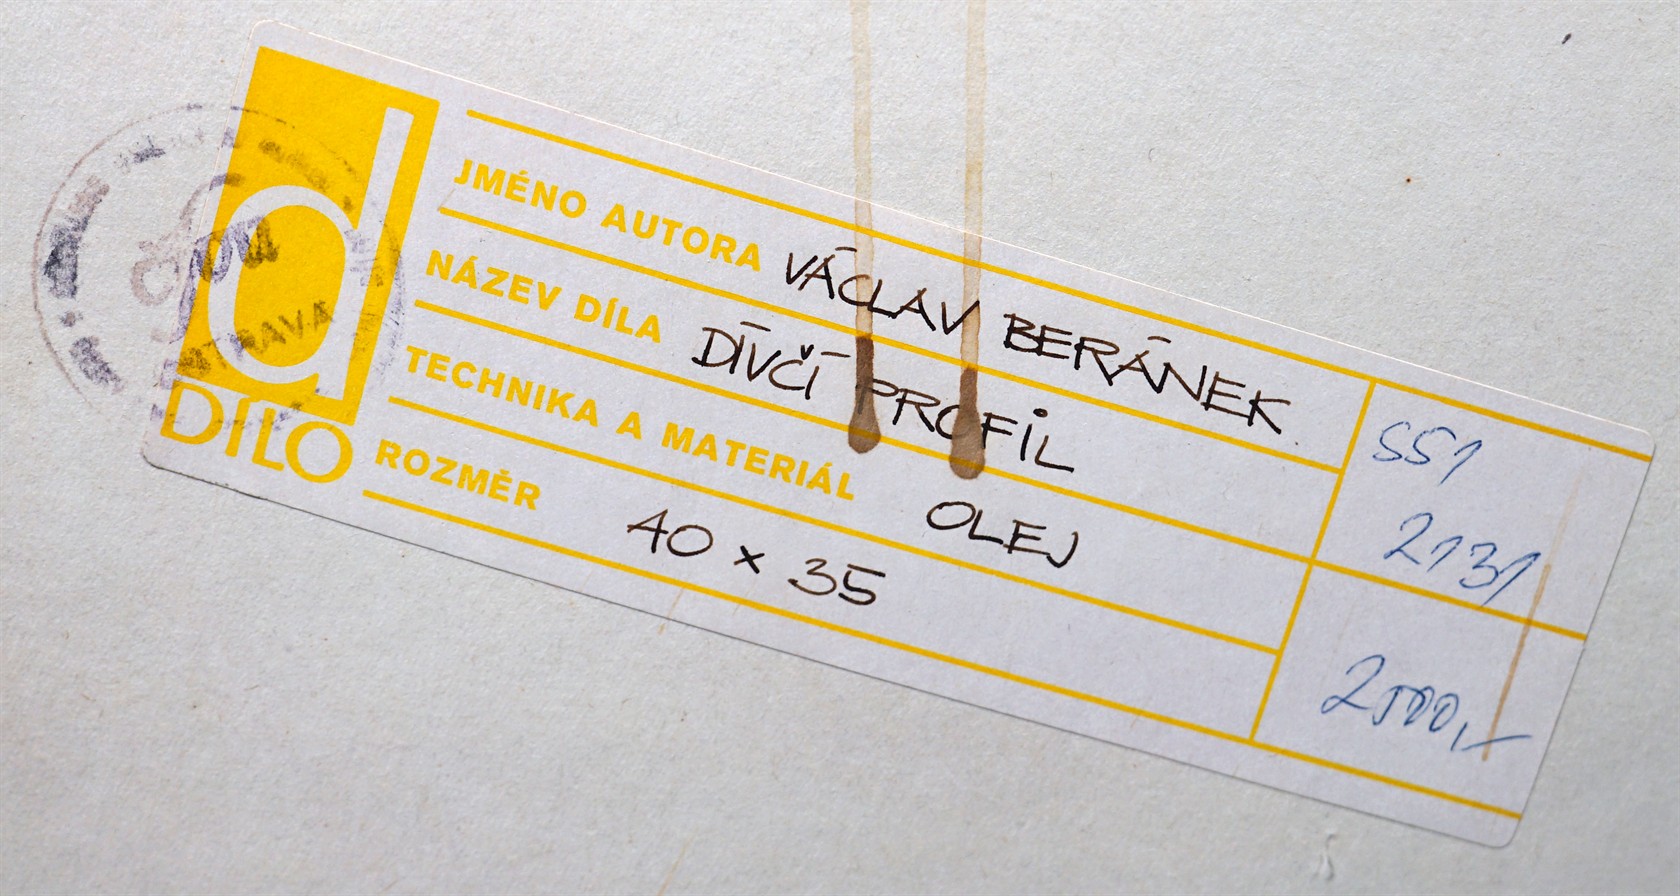 d
DÍLO
JMÉNO AUTORA VÁCLAV BERÁNEK
NÁZEV DÍLA DÍVČÍ PROFIL
TECHNIKA A MATERIÁL OLEJ
ROZMĚR 40 x 35
551
2131
2500,-
OSTRAVA